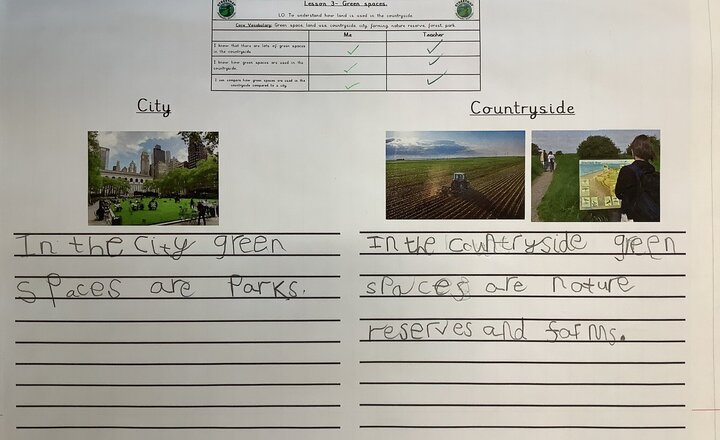 Lesson 3- Green spaces.
LO: To understand how land is used in the countryside.
Core Vocabulary: Green space, land use, countryside, city, farming, nature reserve, forest, park.
Me Teacher
I know that there are lots of green spaces in the countryside.
I know how green spaces are used in the countryside.
I can compare how green spaces are used in the countryside compared to a city.
City
In the city green
spaces are parks.
Countryside
In the countryside green
spaces are nature
reserves and farms.